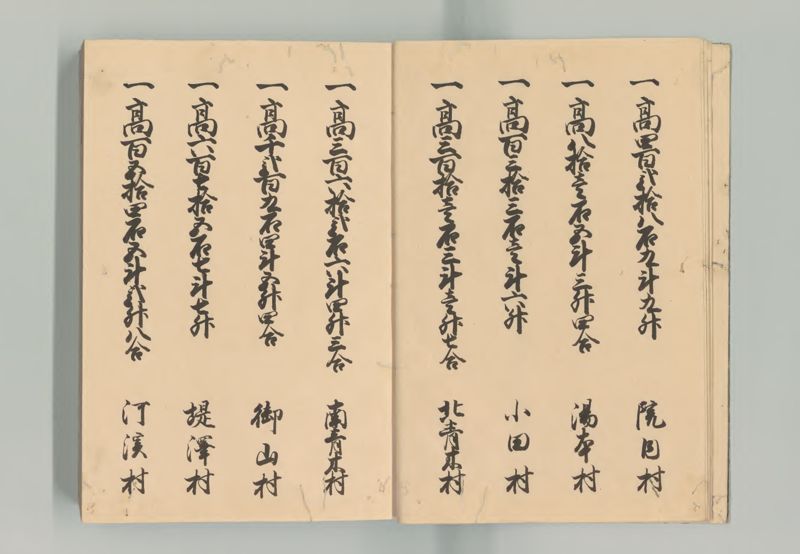 一高四百弐拾八石九斗九升 院内村
一高八拾壱石五斗三升四合 湯本村
一高百三拾三石壱斗六升 小田村
一高三百拾壱石三斗壱升七合 北青木村
一高三百六拾弐石六斗四升三合 南青木村
一高千弐百九石四斗五升四合 御山村
一高六百七拾五石七斗七升 堤澤村
一高百五拾四石五斗弐升八合 河渓村